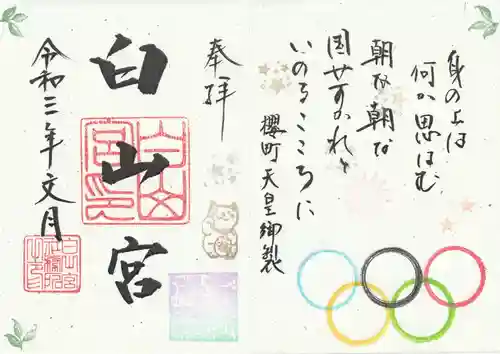 身の上は
何か思はむ
朝な朝な
国やすかれと
いのるこころに
櫻町天皇御製
奉拝
白山宮
令和三年文月